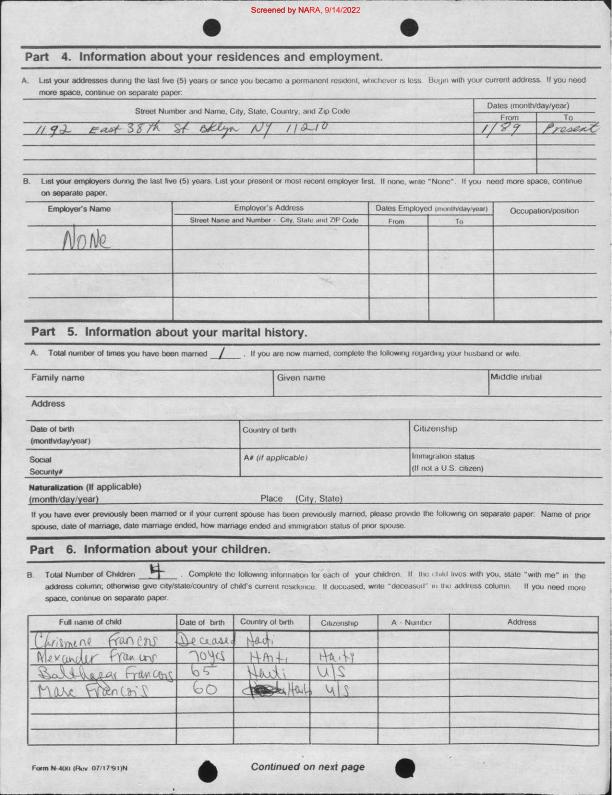 Screened by NARA, 9/14/2022
Part 4. Information about your residences and employment.
A. List your addresses during the last five (5) years or since you became a permanent resident, whichever is less. Begin with your current address. If you need
more space, continue on separate paper:
Street Number and Name, City, State, Country, and Zip Code
Dates (month/day/year)
From To
1192 East 38th St Bklyn NY 11210 1/89 Present
B. List your employers during the last five (5) years. List your present or most recent employer first. If none, write "None". If you need more space, continue
on separate paper.
Employer's Name Employer's Address Dates Employed (month/day/year) Occupation/position
Street Name and Number - City, State and ZIP Code From To
NONe
Part 5. Information about your marital history.
A. Total number of times you have been married 1 . If you are now married, complete the following regarding your husband or wife.
Family name Given name Middle initial
Address
Date of birth
(month/day/year) Country of birth Citizenship
Social
Security# A# (if applicable) Immigration status
(If not a U.S. citizen)
Naturalization (If applicable)
(month/day/year) Place (City, State)
If you have ever previously been married or if your current spouse has been previously married, please provide the following on separate paper: Name of prior
spouse, date of marriage, date marriage ended, how marriage ended and immigration status of prior spouse.
Part 6. Information about your children.
B. Total Number of Children 4 . Complete the following information for each of your children. If the child lives with you, state "with me" in the
address column; otherwise give city/state/country of child's current residence. If deceased, write "deceased" in the address column. If you need more
space, continue on separate paper.
Full name of child Date of birth Country of birth Citizenship A - Number Address
Chrismene Francois Deceased Haiti
Alexander Francois 70yrs HAITI Haiti
Balthazar Francois 65 Haiti U/S
Marc Francois 60 Haiti U/S
Form N-400 (Rev 07/17/91)N Continued on next page